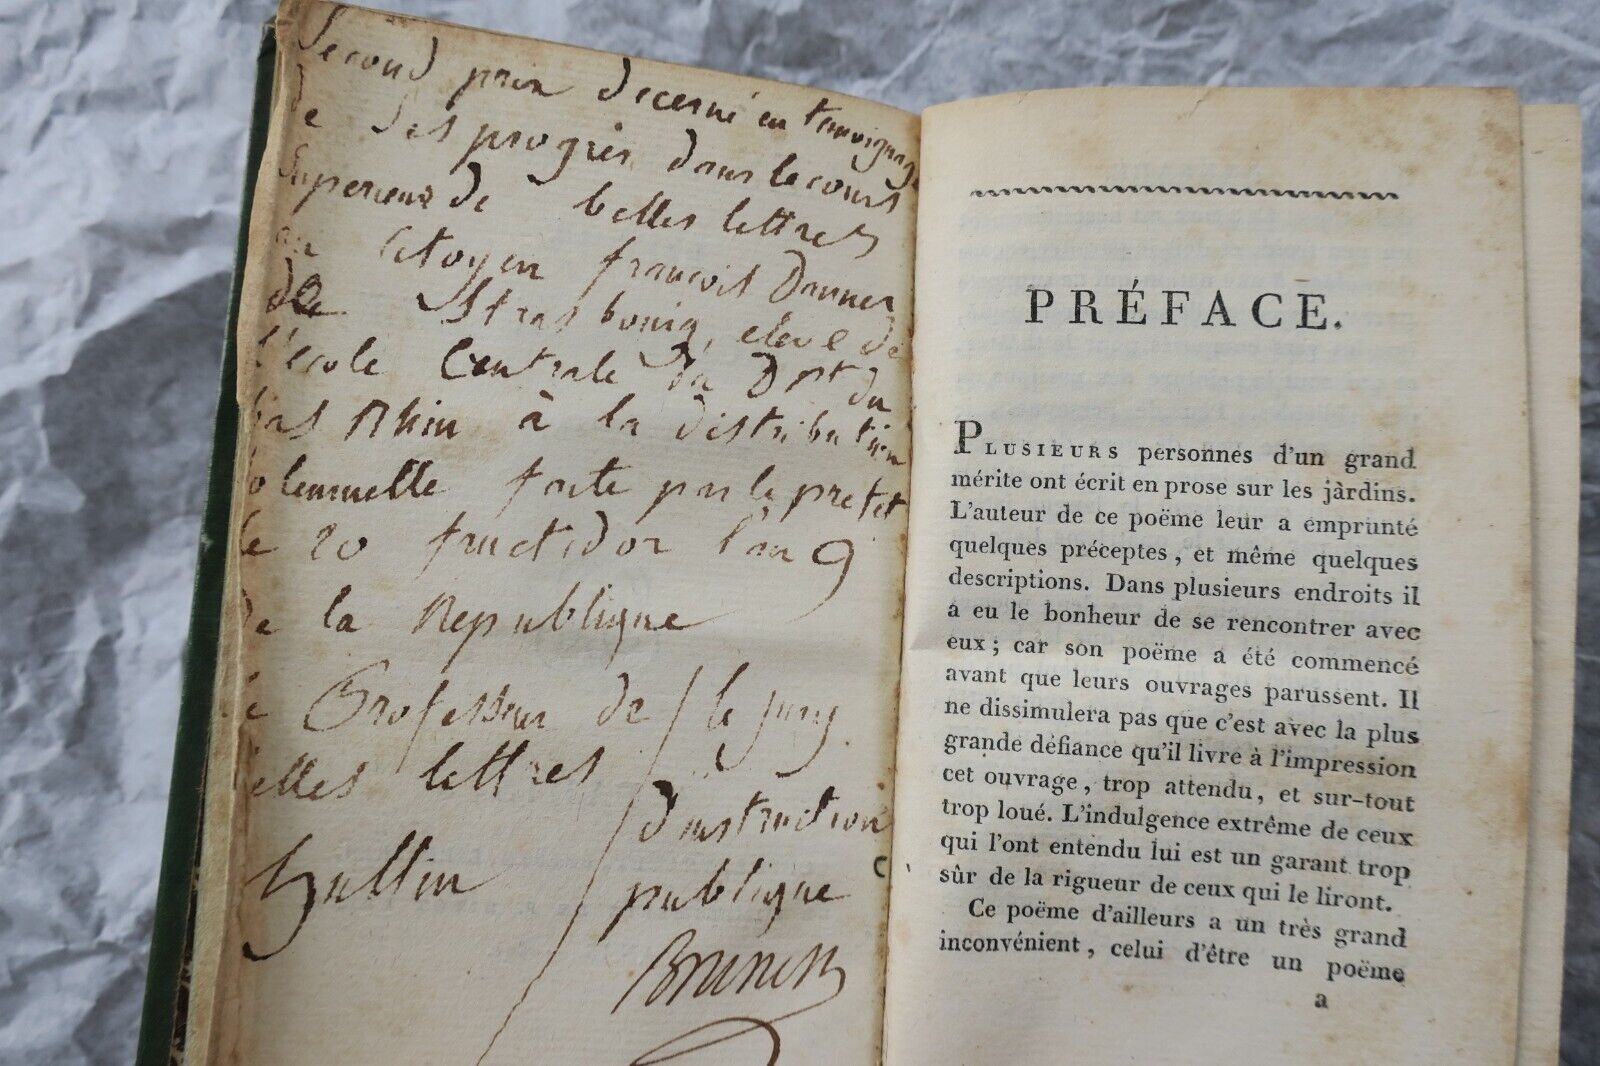 Second prix decerné en temoignage
de ses progrès dans le cours
superieur de belles lettres
au Citoyen françois Danner
de Strasbourg, eleve de
l'ecole Centrale du Dpt du
bas Rhin à la distribution
solemnelle faite par le prefet
le 20 fructidor l'an 9
de la Republique
le Professeur de
belles lettres
hullin
le jury
d'instruction
publique
PRÉFACE.
PLUSIEURS personnes d'un grand
mérite ont écrit en prose sur les jardins.
L'auteur de ce poëme leur a emprunté
quelques préceptes, et même quelques
descriptions. Dans plusieurs endroits il
a eu le bonheur de se rencontrer avec
eux; car son poëme a été commencé
avant que leurs ouvrages parussent. Il
ne dissimulera pas que c'est avec la plus
grande défiance qu'il livre à l'impression
cet ouvrage, trop attendu, et sur-tout
trop loué. L'indulgence extrême de ceux
qui l'ont entendu lui est un garant trop
sûr de la rigueur de ceux qui le liront.
Ce poëme d'ailleurs a un très grand
inconvénient, celui d'être un poëme
a